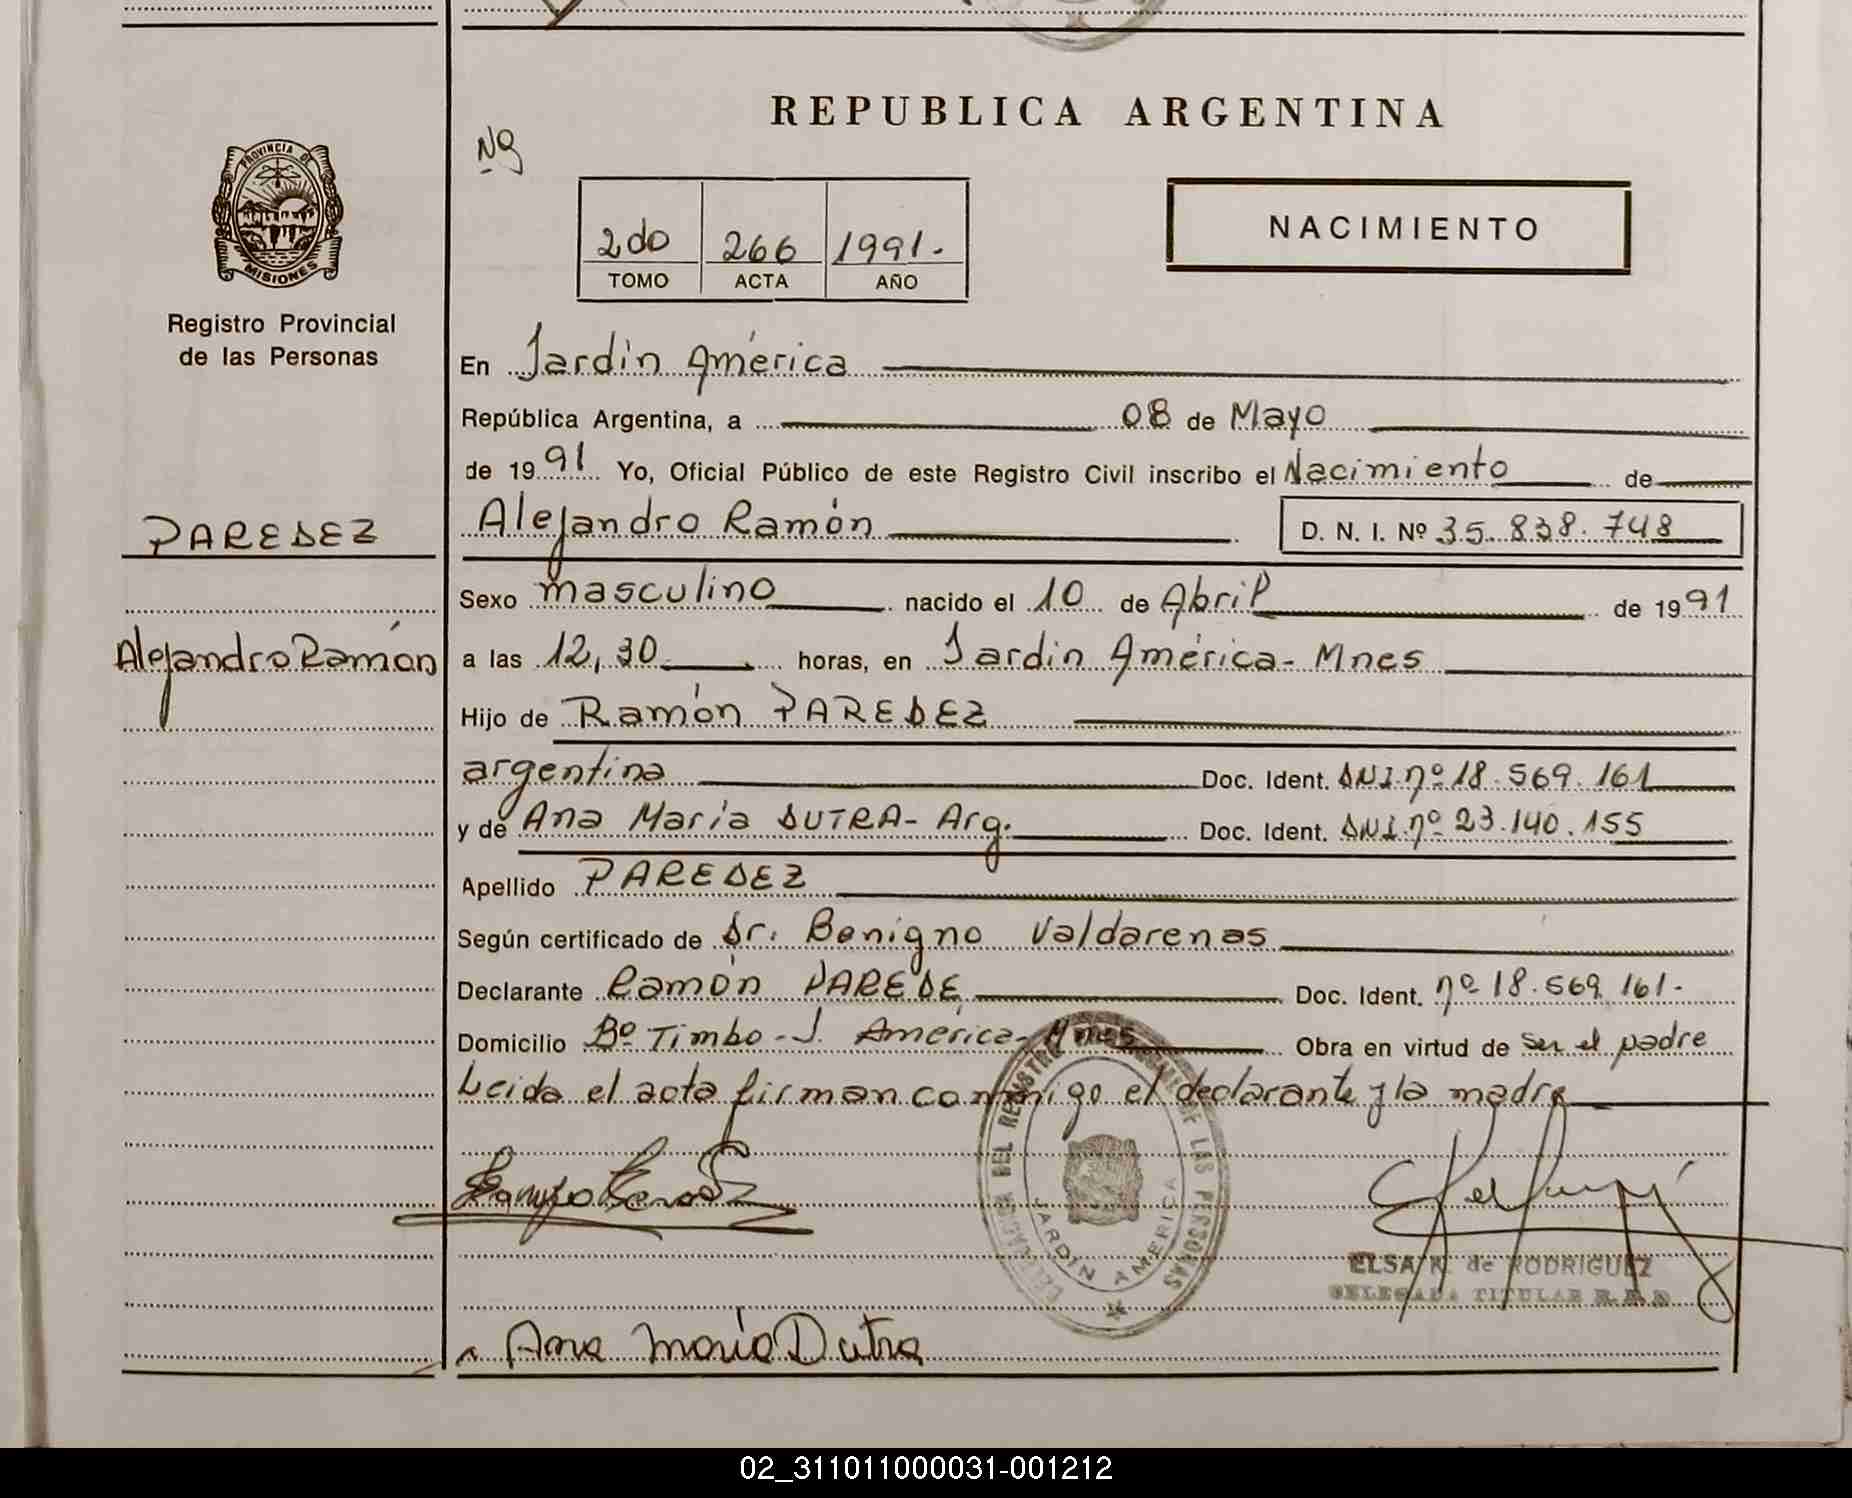 REPUBLICA ARGENTINA
Nº
PROVINCIA DE
MISIONES
Registro Provincial
de las Personas
2do 266 1991.
TOMO ACTA AÑO
NACIMIENTO
En Jardín América
República Argentina, a 08 de Mayo
de 1991 Yo, Oficial Público de este Registro Civil inscribo el Nacimiento de
PAREDEZ
Alejandro Ramón D. N. I. Nº 35.838.748
Sexo masculino nacido el 10 de Abril de 1991
Alejandro Ramón
a las 12,30 horas, en Jardín América - Mnes
Hijo de Ramón PAREDEZ
argentina Doc. Ident. DNI. nº 18.569.161
y de Ana María DUTRA - Arg. Doc. Ident. DNI. nº 23.140.155
Apellido PAREDEZ
Según certificado de Dr. Benigno Valdarenas
Declarante Ramón PAREDE Doc. Ident. nº 18.569.161.
Domicilio Bº Timbo - J. América - Mnes Obra en virtud de ser el padre
Leida el acta firman conmigo el declarante y la madre
DEL REGISTRO DE LAS PERSONAS
JARDIN AMERICA
ELSA R. de RODRIGUEZ
DELEGADA TITULAR R.P.P.
Ana María Dutra
02_311011000031-001212